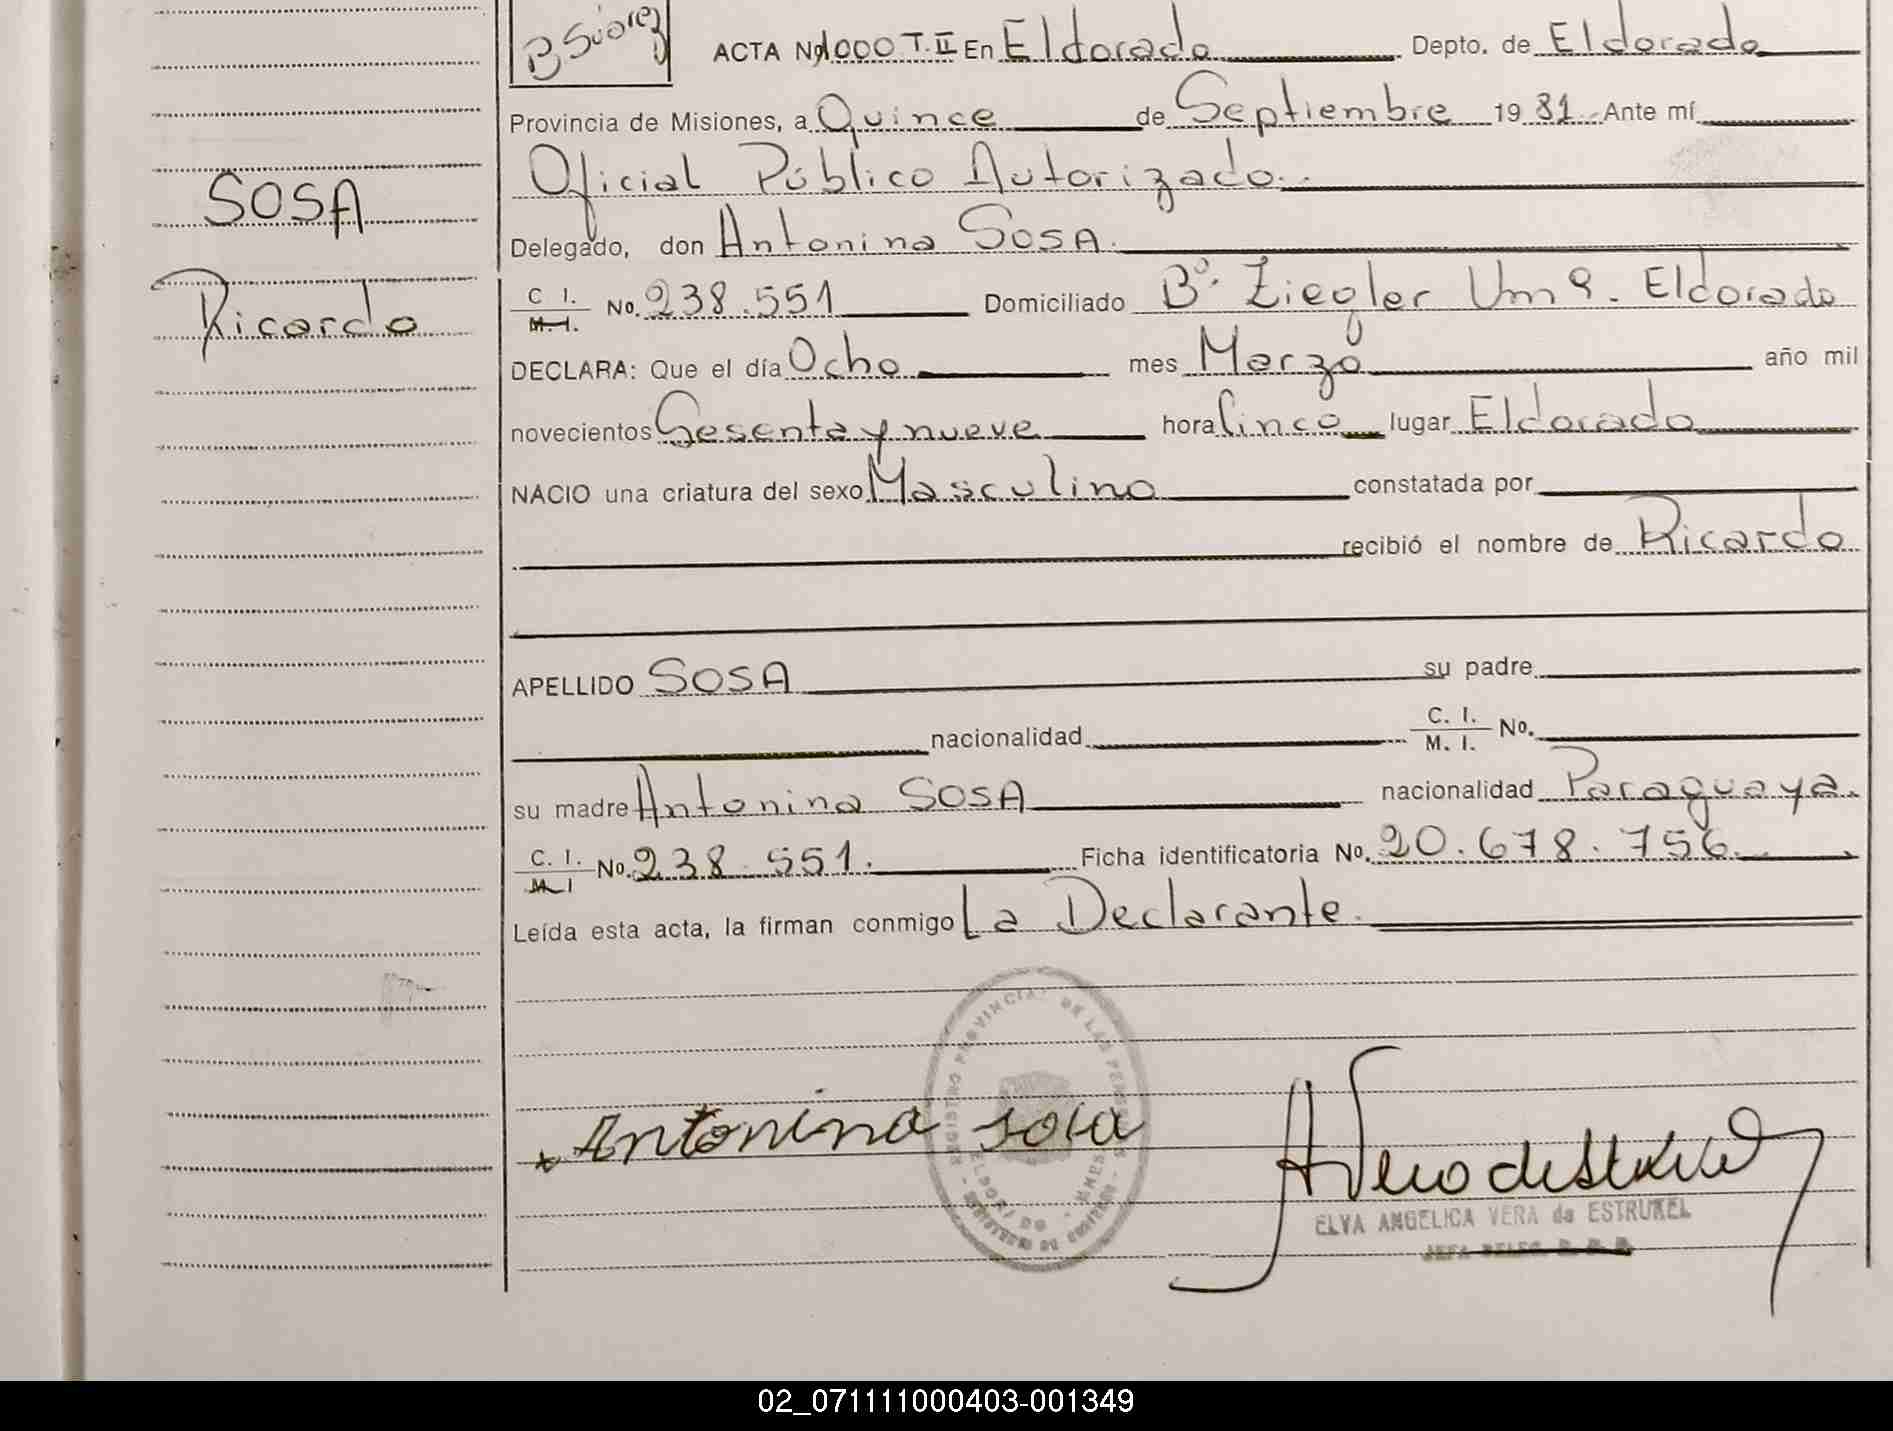 B Suárez
ACTA Nº 1000 T. II En Eldorado Depto. de Eldorado
Provincia de Misiones, a Quince de Septiembre 1981 Ante mí
Oficial Público Autorizado.
SOSA
Delegado, don Antonina SOSA.
Ricardo
C I. / M. I. No. 238.551 Domiciliado Bº. Ziegler Um 9. Eldorado
DECLARA: Que el día Ocho mes Marzo año mil
novecientos Sesenta y nueve hora Cinco lugar Eldorado
NACIO una criatura del sexo Masculino constatada por
recibió el nombre de Ricardo
APELLIDO SOSA su padre
nacionalidad C. I. / M. I. No.
su madre Antonina SOSA nacionalidad Paraguaya.
C. I. / M I No. 238.551. Ficha identificatoria No. 20.678.756.
Leída esta acta, la firman conmigo La Declarante.
REGISTRO PROVINCIAL DE LAS PERSONAS
Antonina Sosa
ELVA ANGELICA VERA de ESTRUKEL
02_071111000403-001349